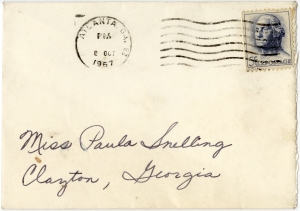 ATLANTA GA.
PM
2 OCT
1967
Miss Paula Snelling
Clayton, Georgia